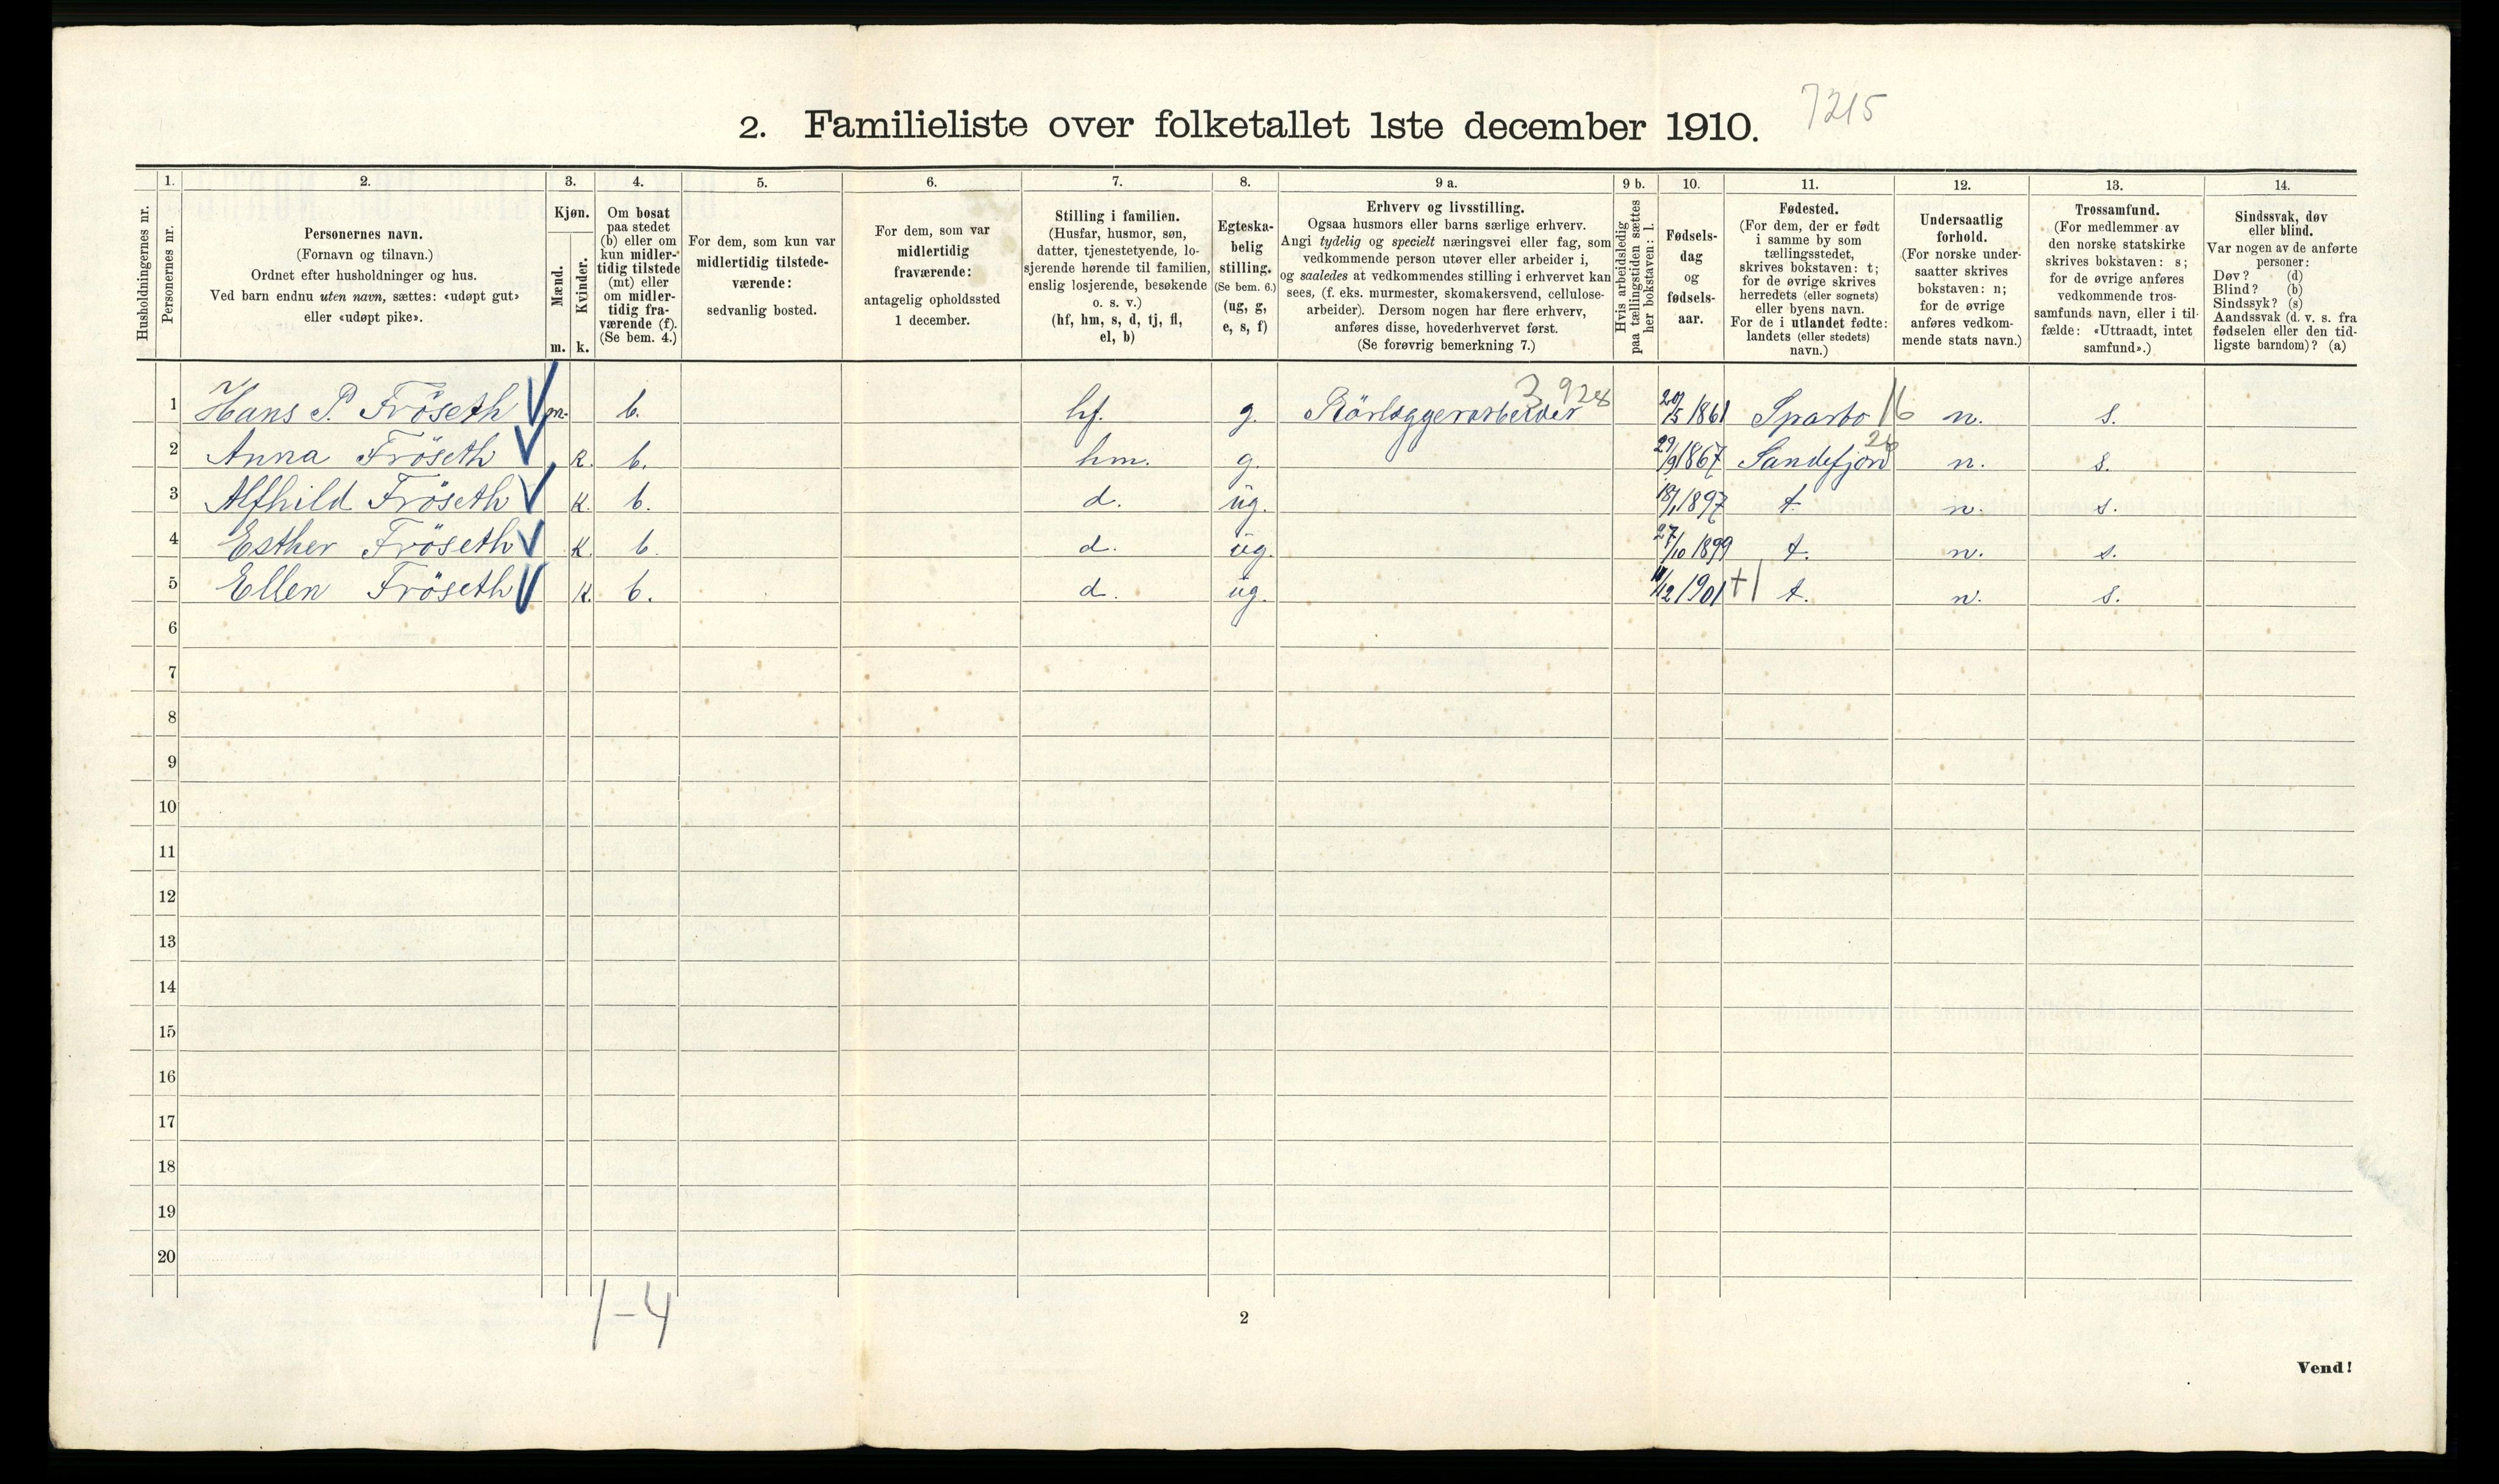 7215
2. Familieliste over folketallet 1ste december 1910.
Husholdningernes nr.
1. Personernes nr.
2. Personernes navn.
(Fornavn og tilnavn.)
Ordnet efter husholdninger og hus.
Ved barn endnu uten navn, sættes: «udøpt gut»
eller «udøpt pike».
3. Kjøn.
Mænd. m.
Kvinder. k.
4. Om bosat
paa stedet
(b) eller om
kun midler-
tidig tilstede
(mt) eller
om midler-
tidig fra-
værende (f).
(Se bem. 4.)
5. For dem, som kun var
midlertidig tilstede-
værende:
sedvanlig bosted.
6. For dem, som var
midlertidig
fraværende:
antagelig opholdssted
1 december.
7. Stilling i familien.
(Husfar, husmor, søn,
datter, tjenestetyende, lo-
sjerende hørende til familien,
enslig losjerende, besøkende
o. s. v.)
(hf, hm, s, d, tj, fl,
el, b)
8. Egteska-
belig
stilling.
(Se bem. 6.)
(ug, g,
e, s, f)
9 a. Erhverv og livsstilling.
Ogsaa husmors eller barns særlige erhverv.
Angi tydelig og specielt næringsvei eller fag, som
vedkommende person utøver eller arbeider i,
og saaledes at vedkommendes stilling i erhvervet kan
sees, (f. eks. murmester, skomakersvend, cellulose-
arbeider). Dersom nogen har flere erhverv,
anføres disse, hovederhvervet først.
(Se forøvrig bemerkning 7.)
9 b. Hvis arbeidsledig
paa tællingstiden sættes
her bokstaven: l.
10. Fødsels-
dag
og
fødsels-
aar.
11. Fødested.
(For dem, der er født
i samme by som
tællingsstedet,
skrives bokstaven: t;
for de øvrige skrives
herredets (eller sognets)
eller byens navn.
For de i utlandet fødte:
landets (eller stedets)
navn.)
12. Undersaatlig
forhold.
(For norske under-
saatter skrives
bokstaven: n;
for de øvrige
anføres vedkom-
mende stats navn.)
13. Trossamfund.
(For medlemmer av
den norske statskirke
skrives bokstaven: s;
for de øvrige anføres
vedkommende tros-
samfunds navn, eller i til-
fælde: «Uttraadt, intet
samfund».)
14. Sindssvak, døv
eller blind.
Var nogen av de anførte
personer:
Døv? (d)
Blind? (b)
Sindssyk? (s)
Aandssvak (d. v. s. fra
fødselen eller den tid-
ligste barndom)? (a)
1 Hans P. Fröseth m. b. hf. g. Rörlæggerarbeider 3 928 20/5 1861 Sparbo 16 n. s.
2 Anna Fröseth k. b. hm. g. 29/9 1867 Sandefjord 26 n. s.
3 Alfhild Fröseth k. b. d. ug. 18/1 1897 t. n. s.
4 Esther Fröseth k. b. d. ug. 27/10 1899 t. n. s.
5 Ellen Fröseth k. b. d. ug. 11/12 1901 +1 t. n. s.
6
7
8
9
10
11
12
13
14
15
16
17
18
19
20
1-4
2
Vend!